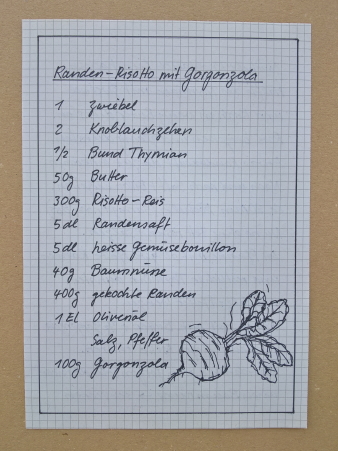 Randen-Risotto mit Gorgonzola
1 Zwiebel
2 Knoblauchzehen
1/2 Bund Thymian
50g Butter
300g Risotto-Reis
5 dl Randensaft
5 dl heisse Gemüsebouillon
40g Baumnüsse
400g gekochte Randen
1 El Olivenöl
Salz, Pfeffer
100g Gorgonzola